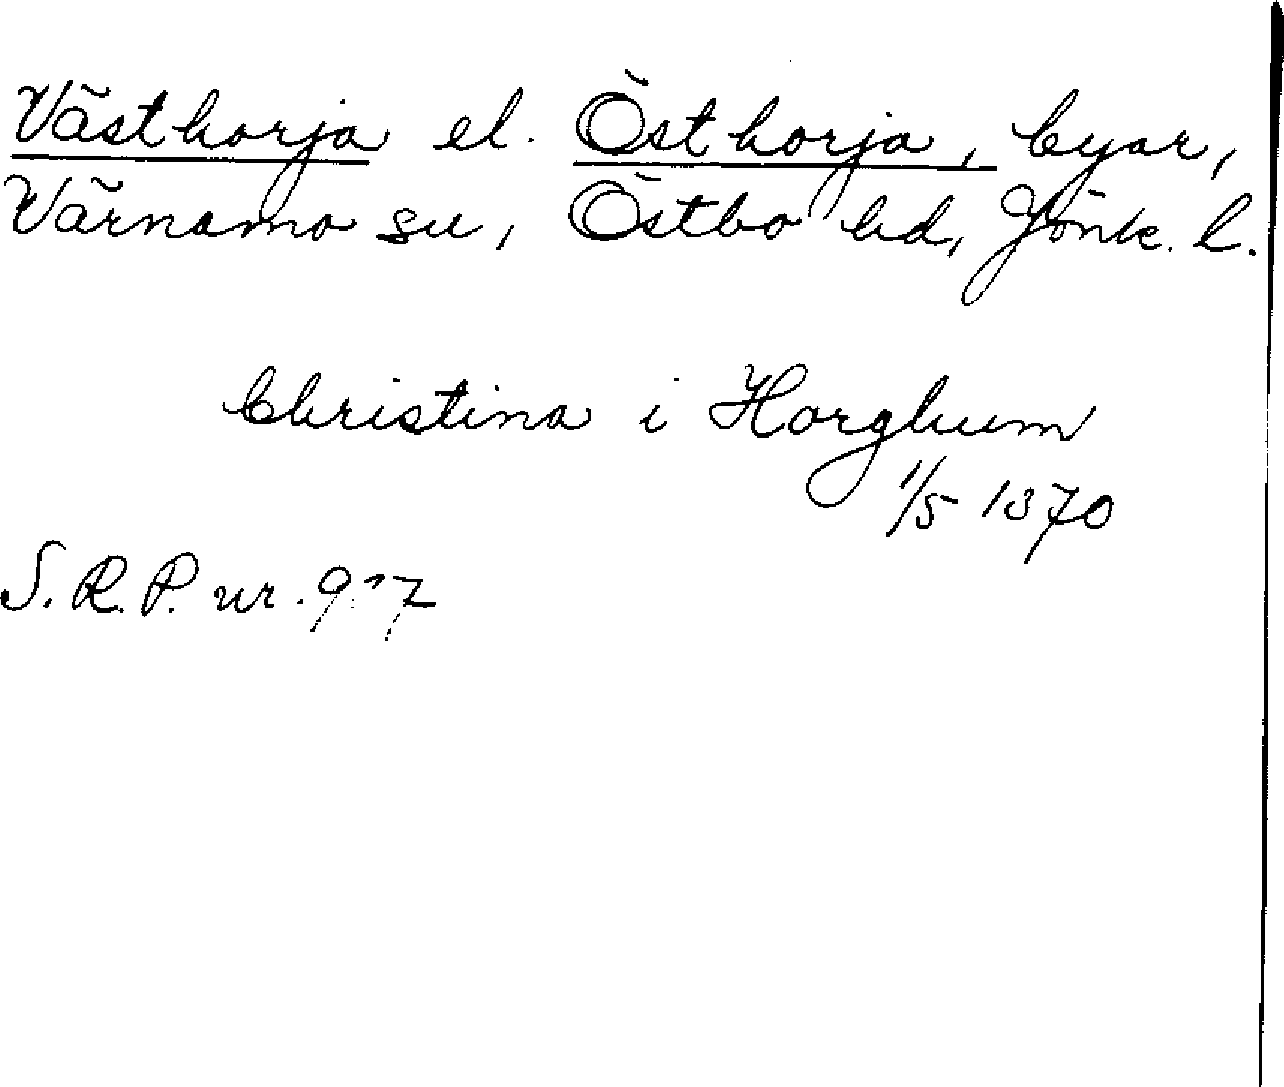 Västhorja el. Östhorja, byar,
Värnamo sn, Östbo hd, Jönk. l.
Christina i Horghum
1/5 1370
S. R. P. nr.